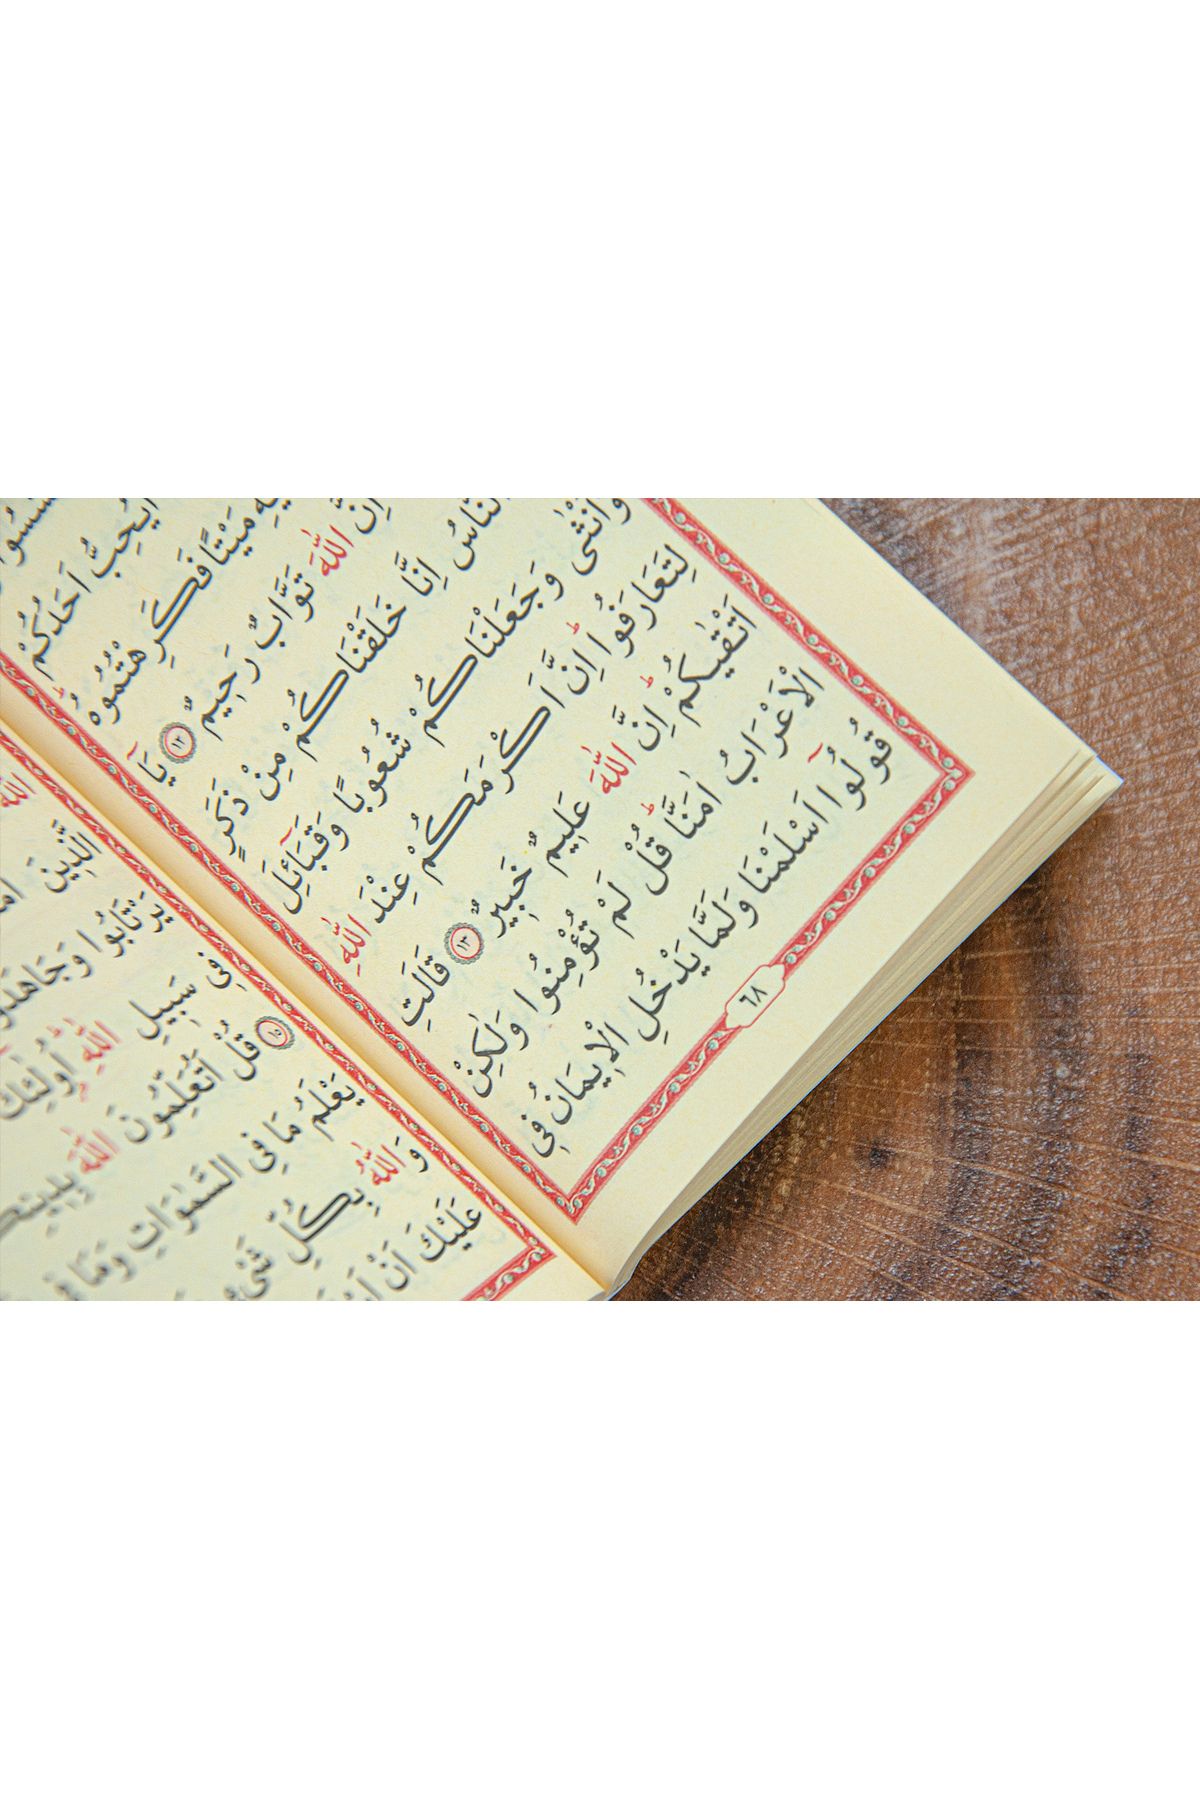 اَيُحِبُّ اَحَدُكُمْ
مَيْتًا فَكَرِهْتُمُوهُ
اِنَّ اللّٰهَ تَوَّابٌ رَحِيمٌ ﴿١٢﴾ يَٓا
النَّاسُ اِنَّا خَلَقْنَاكُمْ مِنْ ذَكَرٍ
وَاُنْثٰى وَجَعَلْنَاكُمْ شُعُوبًا وَقَبَٓائِلَ
لِتَعَارَفُوا ط اِنَّ اَكْرَمَكُمْ عِنْدَ اللّٰهِ
اَتْقٰيكُمْ ط اِنَّ اللّٰهَ عَلِيمٌ خَبِيرٌ ﴿١٣﴾ قَالَتِ
الْاَعْرَابُ اٰمَنَّا ط قُلْ لَمْ تُؤْمِنُوا وَلٰكِنْ
قُولُٓوا اَسْلَمْنَا وَلَمَّا يَدْخُلِ الْاِيمَانُ فِى
٦٨
الَّذِينَ
يَرْتَابُوا وَجَاهَدُوا
فِى سَبِيلِ اللّٰهِ ط اُو۬لٰٓئِكَ
﴿١٥﴾ قُلْ اَتُعَلِّمُونَ اللّٰهَ
يَعْلَمُ مَا فِى السَّمٰوَاتِ وَمَا فِى
وَاللّٰهُ بِكُلِّ شَىْءٍ
عَلَيْكَ اَنْ